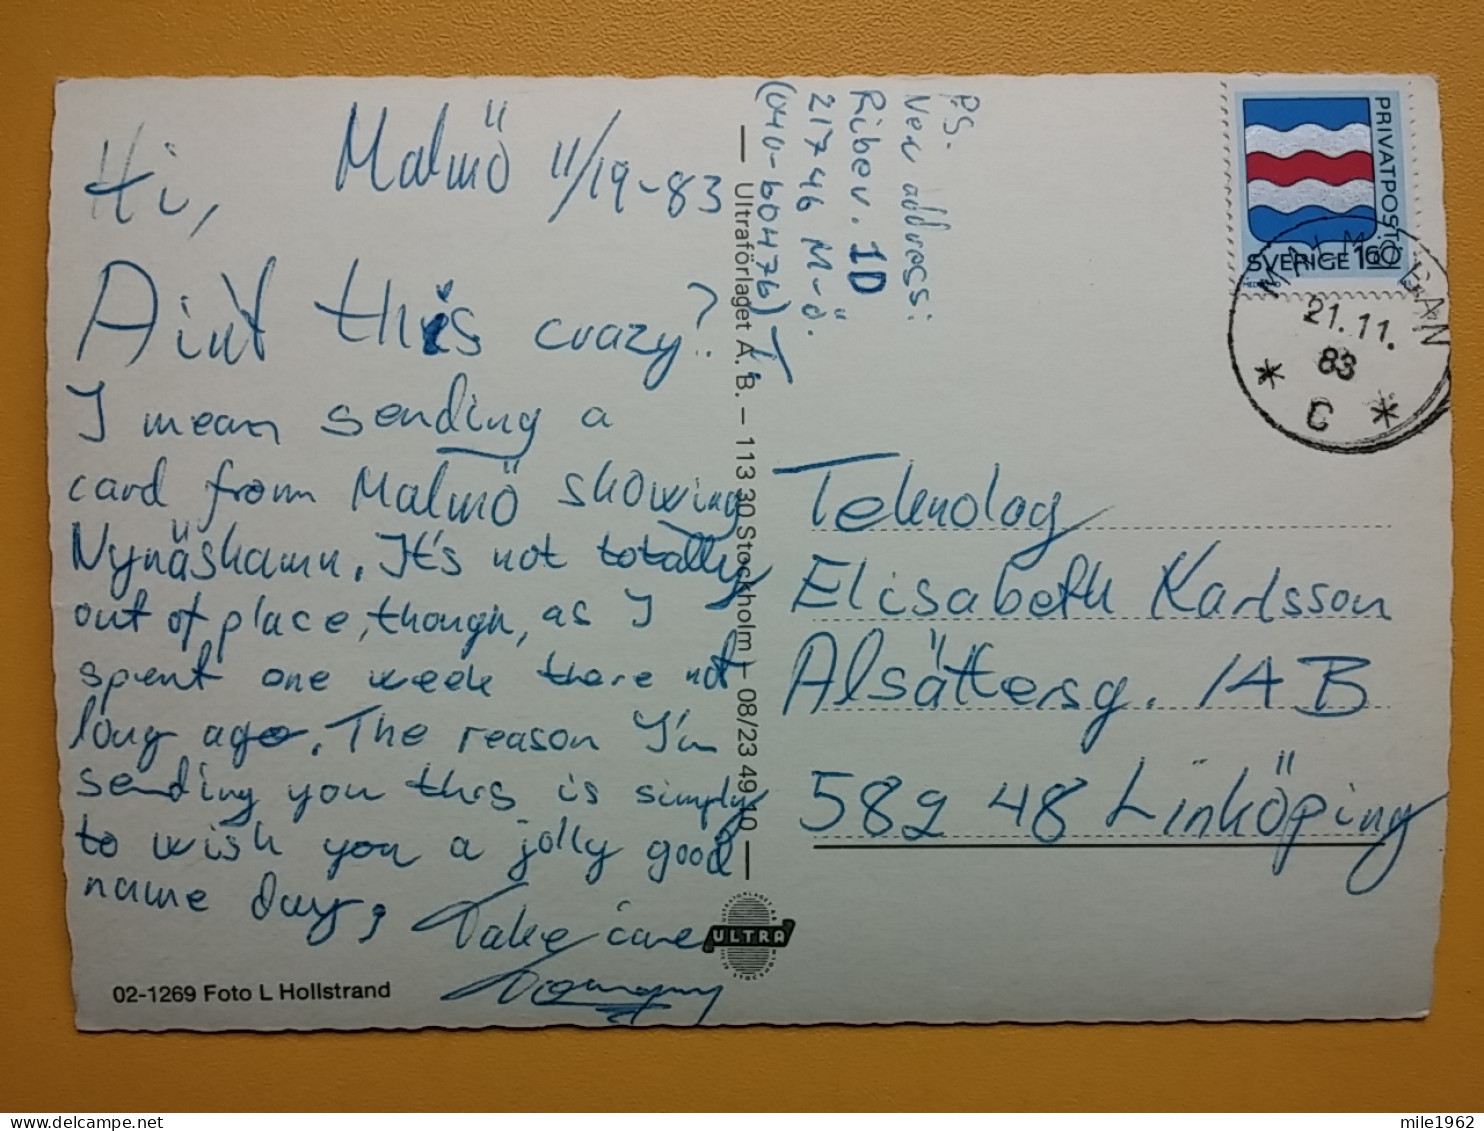 Hi, Malmö 11/19-83
Ain't this crazy?
I mean sending a
card from Malmö showing
Nynäshamn. It's not totally
out of place, though, as I
spent one week there not
long ago. The reason I'm
sending you this is simply
to wish you a jolly good
name day,
Take care
Tommy
02-1269 Foto L Hollstrand
P.S.
New address:
Ribev. 1D
217 46 M-ö.
(040-60476) T.
— Ultraförlaget A.B. – 113 30 Stockholm – 08/23 49 10 —
ULTRA
PRIVATPOST
SVERIGE 160
MALMÖ BAN
21.11.
83
* C *
Teknolog
Elisabeth Karlsson
Alsätersg. 1A B
582 48 Linköping
mile1962